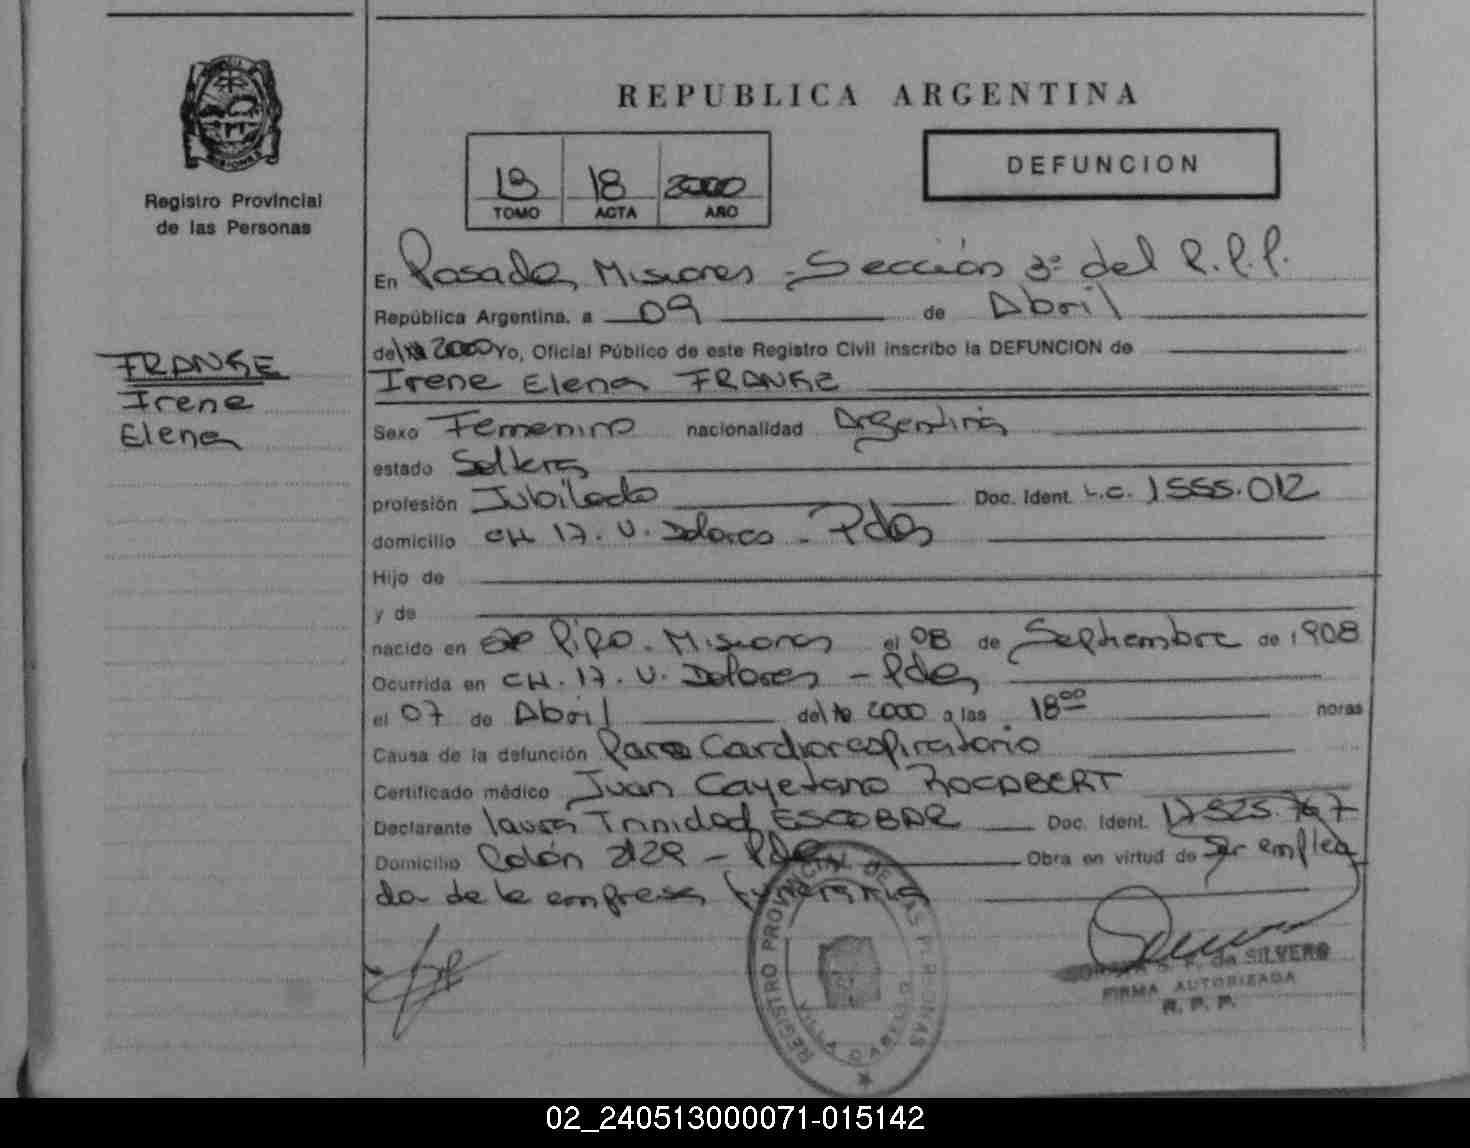 REPUBLICA ARGENTINA
Registro Provincial
de las Personas
DEFUNCION
13 18 2000
TOMO ACTA AÑO
En Posadas, Misiones - Sección 3º del R.P.P.
República Argentina, a 09 de Abril
del 2000 Yo, Oficial Público de este Registro Civil inscribo la DEFUNCION de
Irene Elena FRANKE
FRANKE
Irene
Elena
Sexo Femenino nacionalidad Argentina
estado Soltera
profesión Jubilada Doc. Ident. L.C. 1.555.012
domicilio CH. 17. V. Dolores - Pdas
Hijo de
y de
nacido en Pto Piro. Misiones el 08 de Septiembre de 1908
Ocurrida en CH. 17. V. Dolores - Pdas
el 07 de Abril del 2000 a las 18 00 horas
Causa de la defunción Paro Cardiorespiratorio
Certificado médico Juan Cayetano ROCABERT
Declarante Laura Trinidad ESCOBAR Doc. Ident. 17.525.767
Domicilio Colón 2129 - Pdas Obra en virtud de Ser emplea
da de la empresa funeraria
REGISTRO PROVINCIAL DE LAS PERSONAS
VILLA CABELLO
de SILVERO
FIRMA AUTORIZADA
R. P. P.
02_240513000071-015142